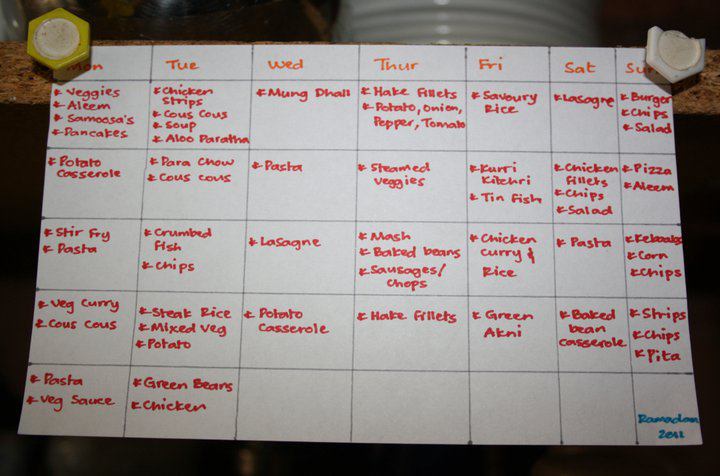 Mon
Tue
Wed
Thur
Fri
Sat
Sun
Veggies
Aleem
Samoosa's
Pancakes
Chicken
Strips
Cous Cous
Soup
Aloo Paratha
Mung Dhall
Hake Fillets
Potato, Onion,
Pepper, Tomato
Savoury
Rice
Lasagne
Burger
Chips
Salad
Potato
Casserole
Para Chow
Cous cous
Pasta
Steamed
Veggies
Kurri
Kitchri
Tin Fish
Chicken
fillets
Chips
Salad
Pizza
Aleem
Stir Fry
Pasta
Crumbed
Fish
Chips
Lasagne
Mash
Baked beans
Sausages/
Chops
Chicken
curry &
Rice
Pasta
Kebaabs
Corn
Chips
Veg Curry
Cous Cous
Steak Rice
Mixed Veg
Potato
Potato
Casserole
Hake Fillets
Green
Akni
Baked
bean
casserole
Strips
Chips
Pita
Pasta
Veg Sauce
Green Beans
Chicken
Ramadan
2011